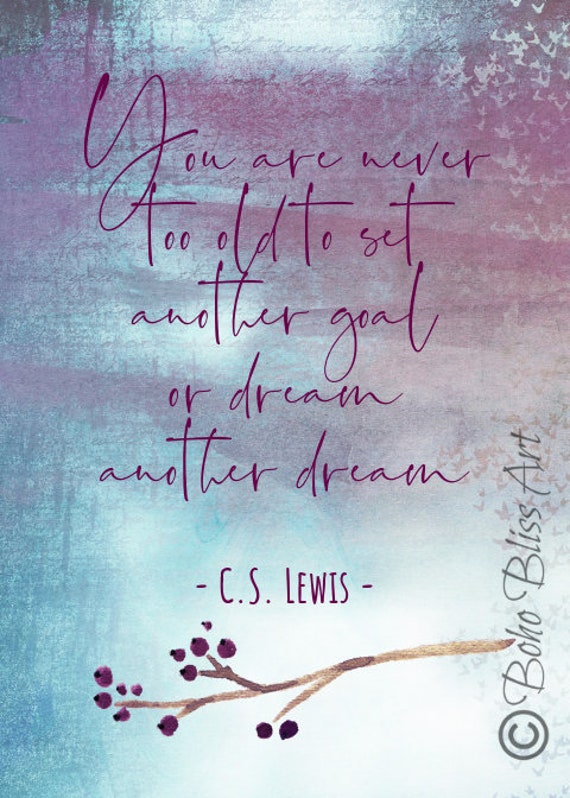 You are never
too old to set
another goal
or dream
another dream
- C.S. Lewis -
© Boho Bliss Art